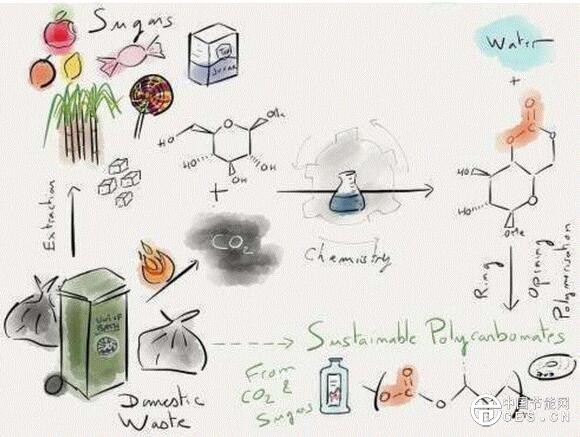 Sugars
SUGAR
Water
+
O
O
O
HO
HO
O
OMe
HO
O
OMe
HO
HO
OH
OH
+
CO2
Chemistry
Extraction
Ring
Opening
Polymerisation
UNI OF
BATH
Domestic
Waste
Sustainable Polycarbonates
From
CO2 &
Sugars
O
O
O
中国节能网
CES.CN